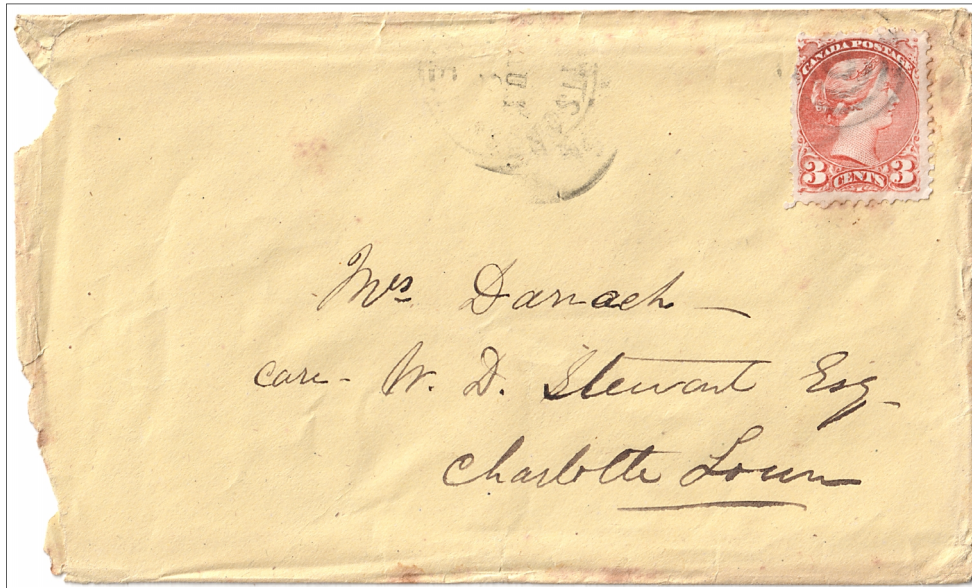 CANADA POSTAGE
3 CENTS 3
Mrs Darrach —
care - W. D. Stewart Esq -
Charlotte Town